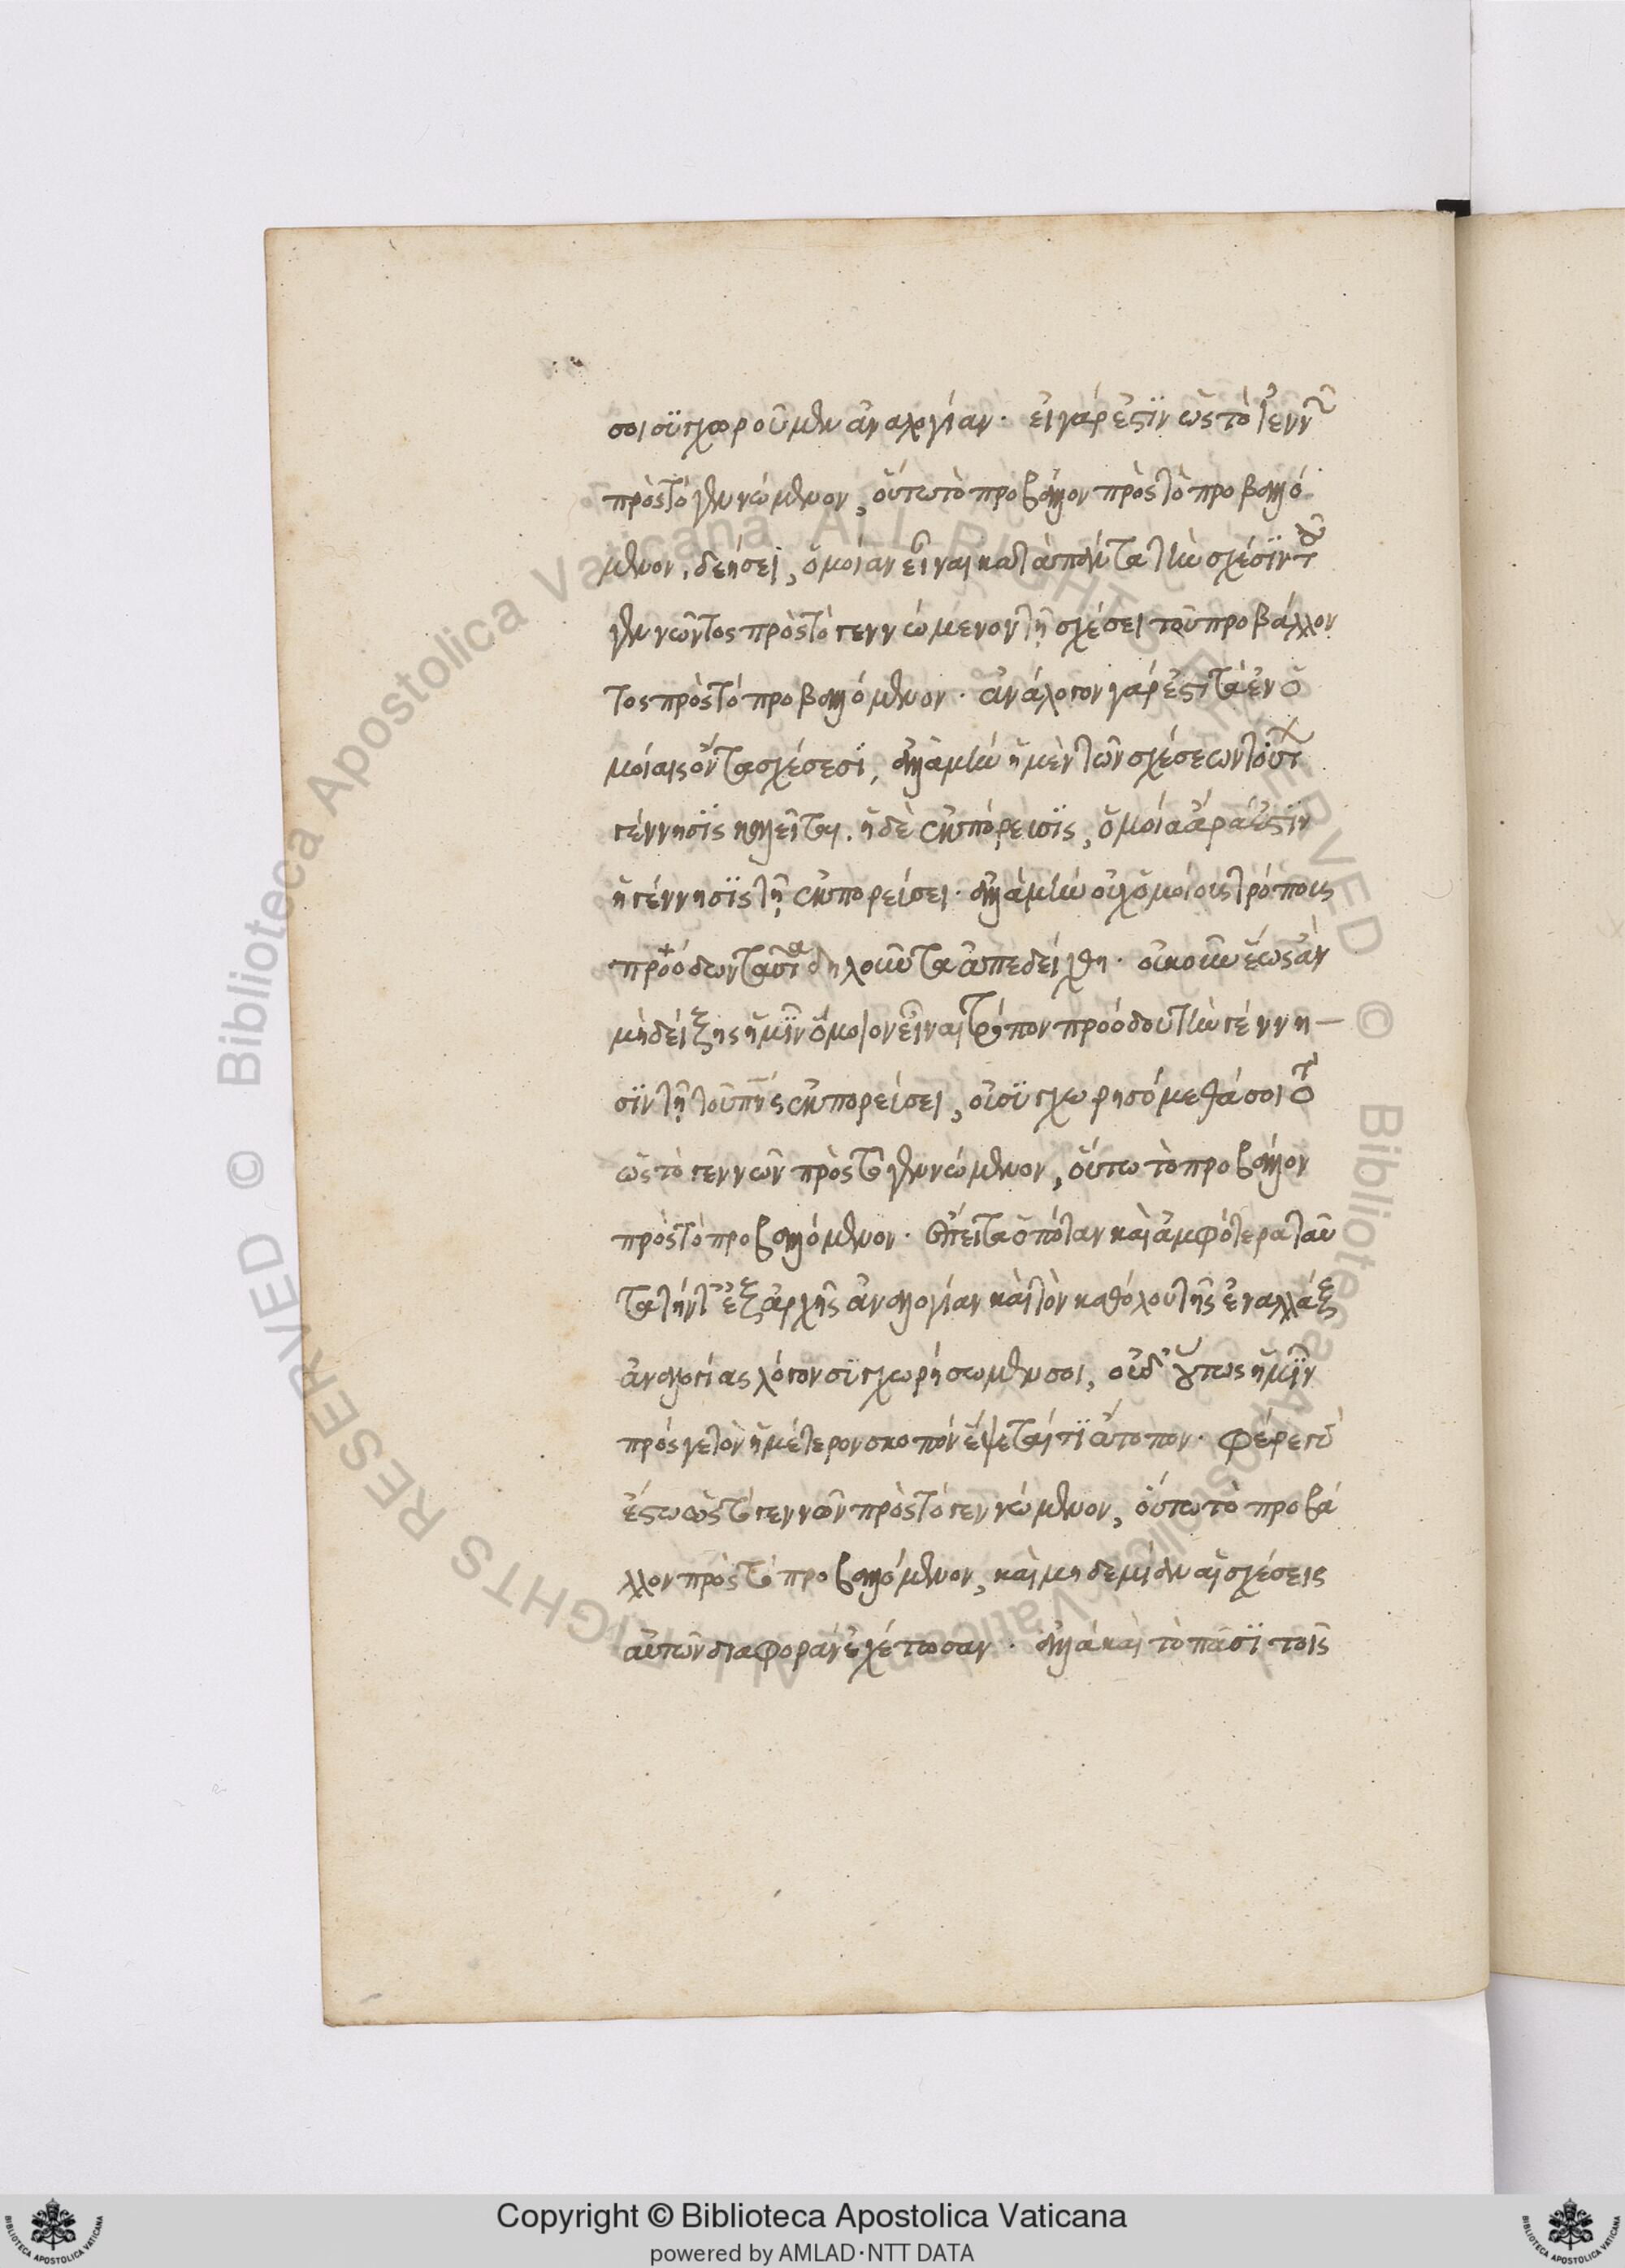 σοι συγχωροῦμεν ἀναλογίαν· εἰ γάρ ἐστιν ὡς τὸ γεννῶν
πρὸς τὸ γεννώμενον, οὕτω τὸ προβάλλον πρὸς τὸ προβαλλό
μενον, δεήσει, ὁμοίαν εἶναι κατὰ πάντα τὴν σχέσιν τοῦ
γεννῶντος πρὸς τὸ γεννώμενον τῇ σχέσει τοῦ προβάλλον
τος πρὸς τὸ προβαλλόμενον· ἀνάλογον γάρ ἐστι τὰ ἐν ὁ
μοίαις ὄντα σχέσεσι, ἀλλὰ μὴν ἡ μὲν τῶν σχέσεων τούτων
γέννησις καλεῖται· ἡ δὲ ἐκπόρευσις, ὁμοία ἄρα ἐστὶν
ἡ γέννησις τῇ ἐκπορεύσει· ἀλλὰ μὴν οὐχ ὁμοίους τρόπους
προόδων ταῦτα δηλοῦντα ἀπεδείχθη· οὐκοῦν ἕως ἂν
μὴ δείξῃς ἡμῖν ὅμοιον εἶναι τρόπον προόδου τὴν γέννη–
σιν τῇ τοῦ πνς ἐκπορεύσει, οὐ συγχωρησόμεθά σοι ὅτι
ὡς τὸ γεννῶν πρὸς τὸ γεννώμενον, οὕτω τὸ προβάλλον
πρὸς τὸ προβαλλόμενον· ἔπειτα ὁπόταν καὶ ἀμφότερα ταῦ
τα τήντ' ἐξ ἀρχῆς ἀναλογίαν καὶ τὸν καθόλου τῆς ἐναλλὰξ
ἀναλογίας λόγον συγχωρήσωμέν σοι, οὐδ' οὕτως ἡμῖν
πρός γε τὸν ἡμέτερον σκοπὸν ἕψεταί τι ἄτοπον· φέρε γὰρ
ἔστω ὡς τὸ γεννῶν πρὸς τὸ γεννώμενον, οὕτω τὸ προβά
λλον πρὸς τὸ προβαλλόμενον, καὶ μηδεμίαν αἱ σχέσεις
αὐτῶν διαφορὰν ἐχέτωσαν· ἀλλὰ καὶ τὸ πᾶσι τοῖς